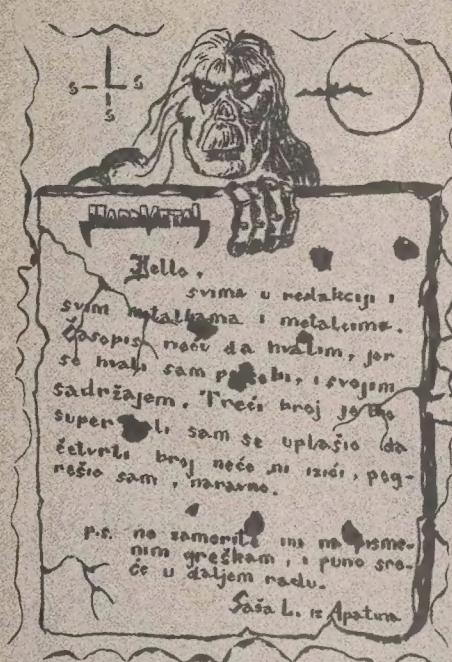 S S
S
HARD METAL
Hello,
svima u redakciji i
svim metalkama i metalcima.
Časopis neću da hvalim, jer
se hvali sam po sebi, i svojim
sadržajem. Treći broj je bio
super ali sam se uplašio da
četvrti broj neće ni izići, pog-
rešio sam, naravno.
p.s. ne zamerite mi na pisme-
nim greškam, i puno sre-
će u daljem radu.
Saša L. iz Apatina